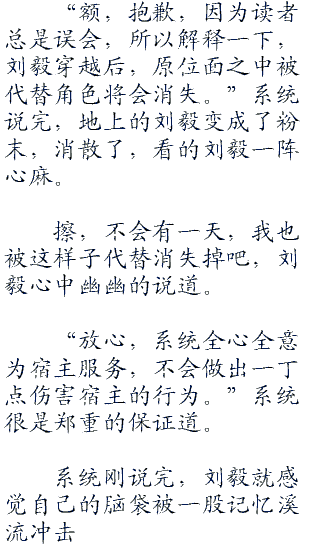 “额，抱歉，因为读者
总是误会，所以解释一下，
刘毅穿越后，原位面之中被
代替角色将会消失。”系统
说完，地上的刘毅变成了粉
末，消散了，看的刘毅一阵
心麻。
擦，不会有一天，我也
被这样子代替消失掉吧，刘
毅心中幽幽的说道。
“放心，系统全心全意
为宿主服务，不会做出一丁
点伤害宿主的行为。”系统
很是郑重的保证道。
系统刚说完，刘毅就感
觉自己的脑袋被一股记忆溪
流冲击